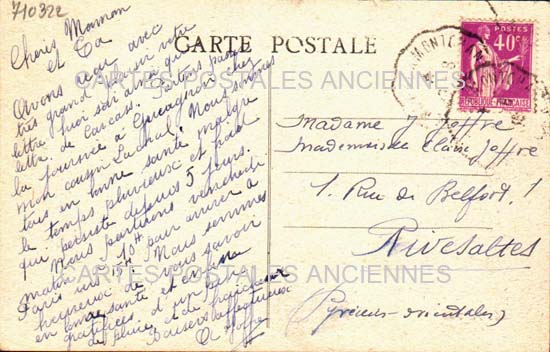 710322
CARTE POSTALE
CARTES POSTALES ANCIENNES
CARTES POSTALES ANCIENNES
40c
RÉPUBLIQUE FRANÇAISE
Cheris Maman
et Ta
Avons reçu avec
très grand plaisir votre
lettre hier soir ainsi que
lettre de Carcas. Partons passer
la journée à chez
mon cousin Lachal. Nous sommes
tous en bonne santé malgré
le temps pluvieux et froid
qui persiste depuis 5 jours.
Nous partirons vendredi
matin pour arriver à
Paris vers Nous sommes
heureux de vous savoir
en bonne santé et
gratifiées d'un peu
de pluie et de fraicheur
Baisers affectueux
Joffre
Madame J. Joffre
Mademoiselle Claire Joffre
1. Rue de Belfort. 1
Rivesaltes
(Pyrénées-orientales)